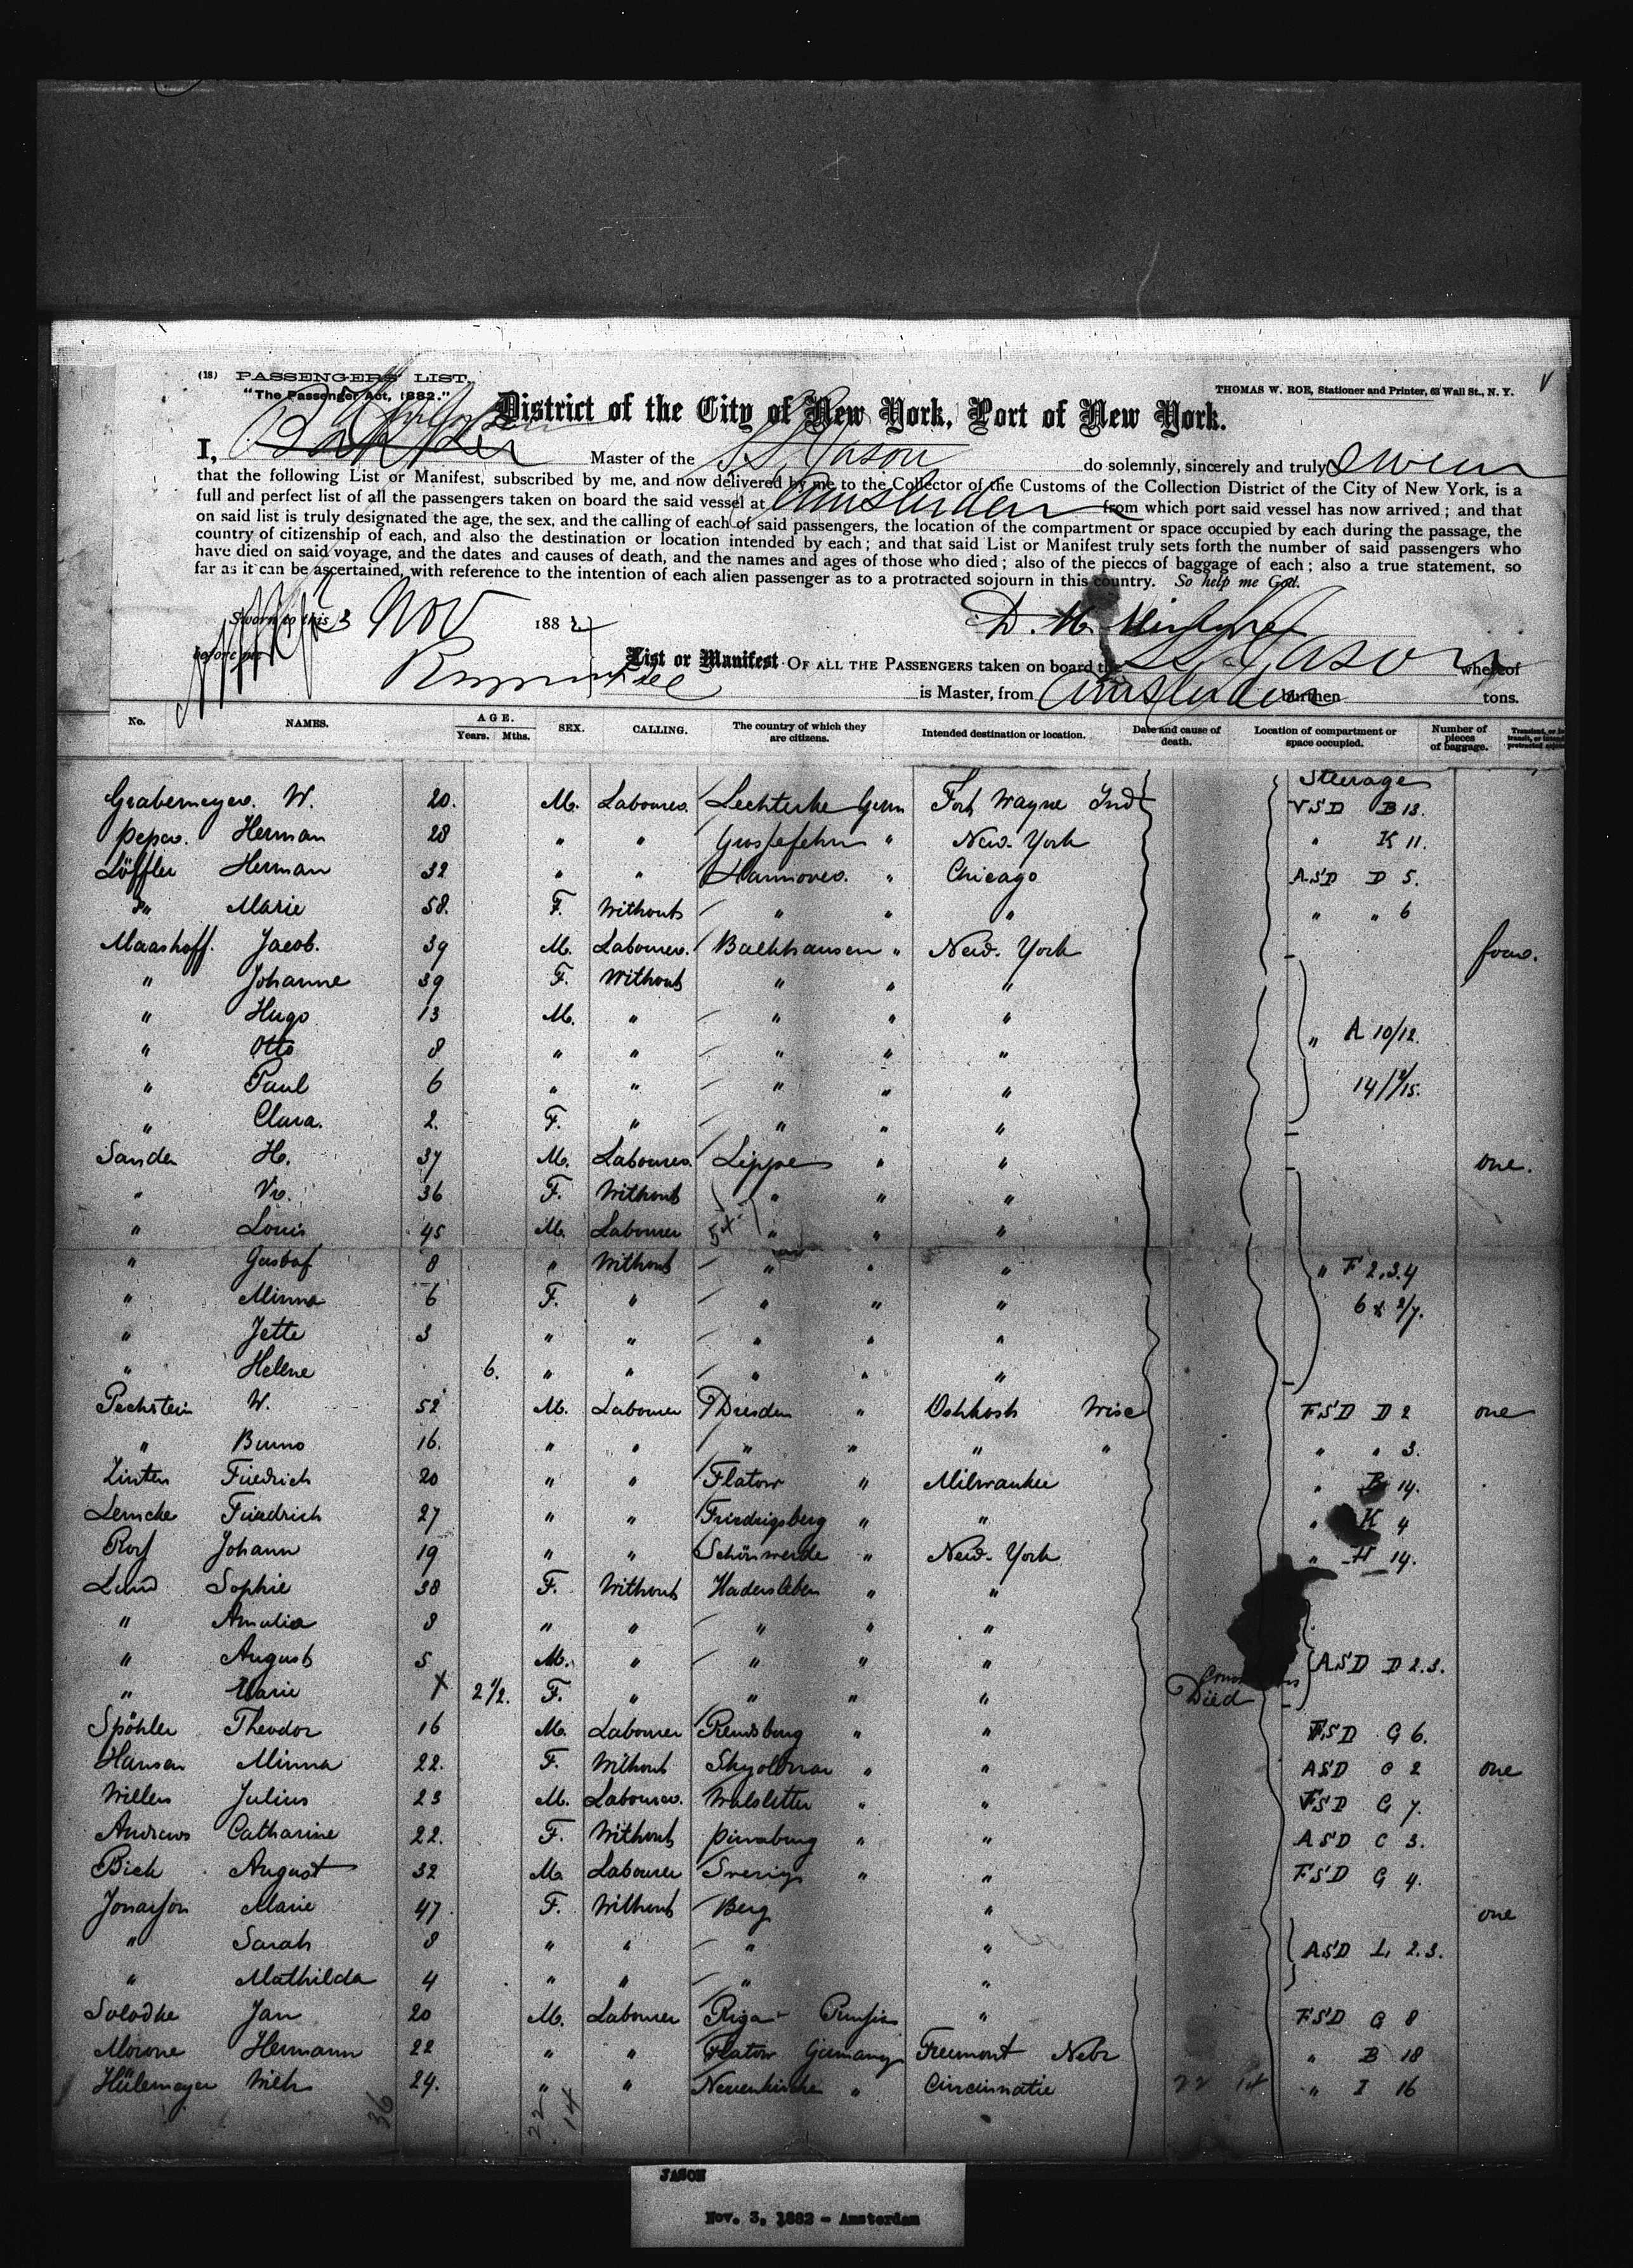 (18) PASSENGERS' LIST.
"The Passenger Act, 1882."
THOMAS W. ROE, Stationer and Printer, 63 Wall St., N. Y.
District of the City of New York, Port of New York.
I, Master of the S.S. Jason do solemnly, sincerely and truly swear
that the following List or Manifest, subscribed by me, and now delivered by me to the Collector of the Customs of the Collection District of the City of New York, is a
full and perfect list of all the passengers taken on board the said vessel at Amsterdam from which port said vessel has now arrived; and that
on said list is truly designated the age, the sex, and the calling of each of said passengers, the location of the compartment or space occupied by each during the passage, the
country of citizenship of each, and also the destination or location intended by each; and that said List or Manifest truly sets forth the number of said passengers who
have died on said voyage, and the dates and causes of death, and the names and ages of those who died; also of the pieces of baggage of each; also a true statement, so
far as it can be ascertained, with reference to the intention of each alien passenger as to a protracted sojourn in this country. So help me God.
Sworn to this 3 Nov 1882
before me
List or Manifest OF ALL THE PASSENGERS taken on board the SS Jason whereof
is Master, from Amsterdam burthen tons.
No. NAMES. AGE. Years. Mths. SEX. CALLING. The country of which they are citizens. Intended destination or location. Date and cause of death. Location of compartment or space occupied. Number of pieces of baggage.
Steerage
Grabemeyer. W. 20. M. Labourer Lechterke Germ Fort Wayne Ind VSD B 13.
Peper. Herman 28 " " Grossefehn " New-York " K 11.
Löffler Herman 32 " " Hannover. " Chicago ASD D 5.
" Marie 58. F. Without " " " " " 6
Maashoff. Jacob. 39 M. Labourer. Balkhausen " New-York four.
" Johanne 39 F. Without " " "
" Hugo 13 M. " " " "
" Otto 8 " " " " " " A 10/12.
" Paul 6 " " " " " 14 1/2/15.
" Clara. 2. F. " " " "
Sander H. 37 M. Labourer Lippe " " one.
" Vr. 36 F. Without " " "
" Louis 45 M. Labourer " " "
" Gustaf 8 " Without " " " " F 2.3.4
" Minna 6 F. " " " " 6 & 2/7.
" Jette 3 " " " " "
" Helene 6. " " " " "
Pechstein W. 52 M. Labourer Dresden " Oshkosh Wisc FSD D 2 one
" Bruno 16. " " " " " " " " 3.
Zinten Friedrich 20 " " Flatow " Milwaukee " B 14.
Lemcke Friedrich 27 " " Friedrigsberg " " " K 4
Johann 19 " " Schönwerde " New-York " H 14.
Lund Sophie 38 F. Without Hadersleben " "
" Amalia 8 " " " " "
" August 5 M. " " " " ASD D 2.3.
" Marie 2 1/2. F. " " " " Died
Spöhler Theodor 16 M. Labourer Rendsburg " " FSD G 6.
Hansen Minna 22. F. Without " " ASD C 2 one
Willers Julius 23 M. Labourer. Walsletter " " FSD G 7.
Andrews Catharine 22. F. Without Pinnaburg " " ASD C 3.
Bick August 32 M Labourer Sverig " " FSD G 4.
Jonasson Marie 47 F. Without Berg " one
" Sarah 8 " " " " ASD L 2.3.
" Mathilda 4 " " " "
Solodke Jan 20 M. Labourer Riga " FSD G 8
Morone Hermann 22 " " Flatow Germany Freemont Nebr " B 18
Hülemeyer Wilh 24. " " Neuenkirchen " Cincinnatie 22 14 " I 16
36 22 14
JASON
Nov. 3, 1882 - Amsterdam